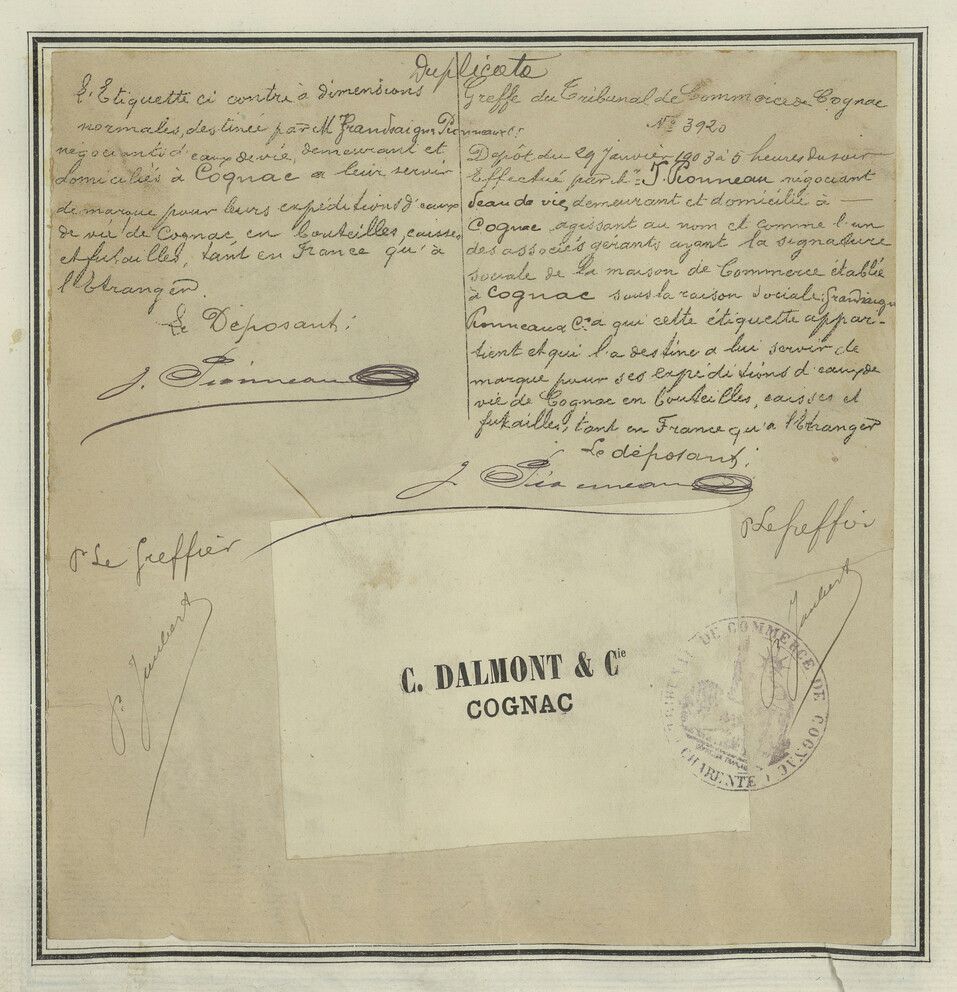 Duplicata
L'Etiquette ci contre à dimensions
normales, destinée par M Frandsaigne Pionneau & Cie
négociants d'eaux de vie, demeurant et
domiciliés à Cognac a leur servir
de marque pour leurs expéditions d'eaux
de vie de Cognac en bouteilles, caisses
et futailles, tant en France qu'à
l'Etranger.
Le Déposant:
J. Pionneau
Pr Le Greffier
P. Jaubert
Greffe du Tribunal de Commerce de Cognac
No 3920
Dépôt du 29 Janvier 1903 à 5 heures du soir
Effectué par Mr J. Pionneau négociant
d'eau de vie, demeurant et domicilié à —
Cognac, agissant au nom et comme l'un
des associés gérants ayant la signature
sociale de la maison de Commerce établie
à Cognac sous la raison sociale: Frandsaigne
Pionneau & Cie a qui cette étiquette appar-
tient et qui l'a destine a lui servir de
marque pour ses expéditions d'eaux de
vie de Cognac en bouteilles, caisses et
futailles, tant en France qu'a l'Etranger
Le déposant:
J. Pionneau
Pr Le Greffier
P. Jaubert
C. DALMONT & Cie
COGNAC
TRIBUNAL DE COMMERCE DE COGNAC
CHARENTE